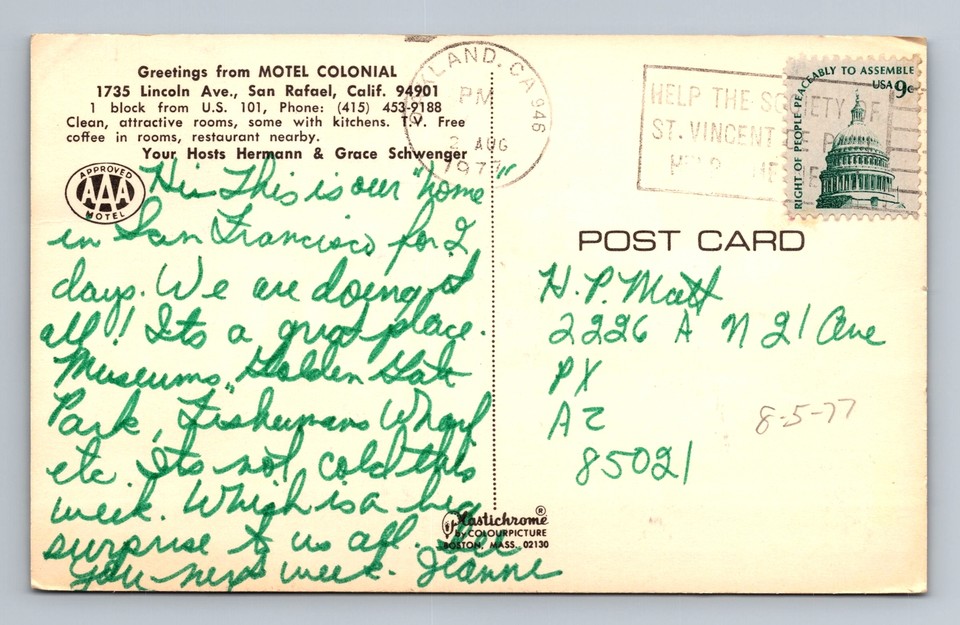 Greetings from MOTEL COLONIAL
1735 Lincoln Ave., San Rafael, Calif. 94901
1 block from U.S. 101, Phone: (415) 453-9188
Clean, attractive rooms, some with kitchens. T.V. Free
coffee in rooms, restaurant nearby.
Your Hosts Hermann & Grace Schwenger
APPROVED
AAA
MOTEL
Hi - This is our "home"
in San Francisco for 2
days. We are doing it
all! Its a great place.
Museums, Golden Gate
Park, Fishermans Wharf
etc. Its not cold this
week. Which is a big
surprise to us all. See
you next week. Jeanne
KLAND, CA 946
PM
3 AUG
1977
HELP THE SOCIETY OF
ST. VINCENT
HELP
RIGHT OF PEOPLE PEACEABLY TO ASSEMBLE
USA 9c
POST CARD
H. P. Matt
2226 A N 21 Ave
PX
AZ
85021
8-5-77
Plastichrome®
By COLOURPICTURE
BOSTON, MASS. 02130